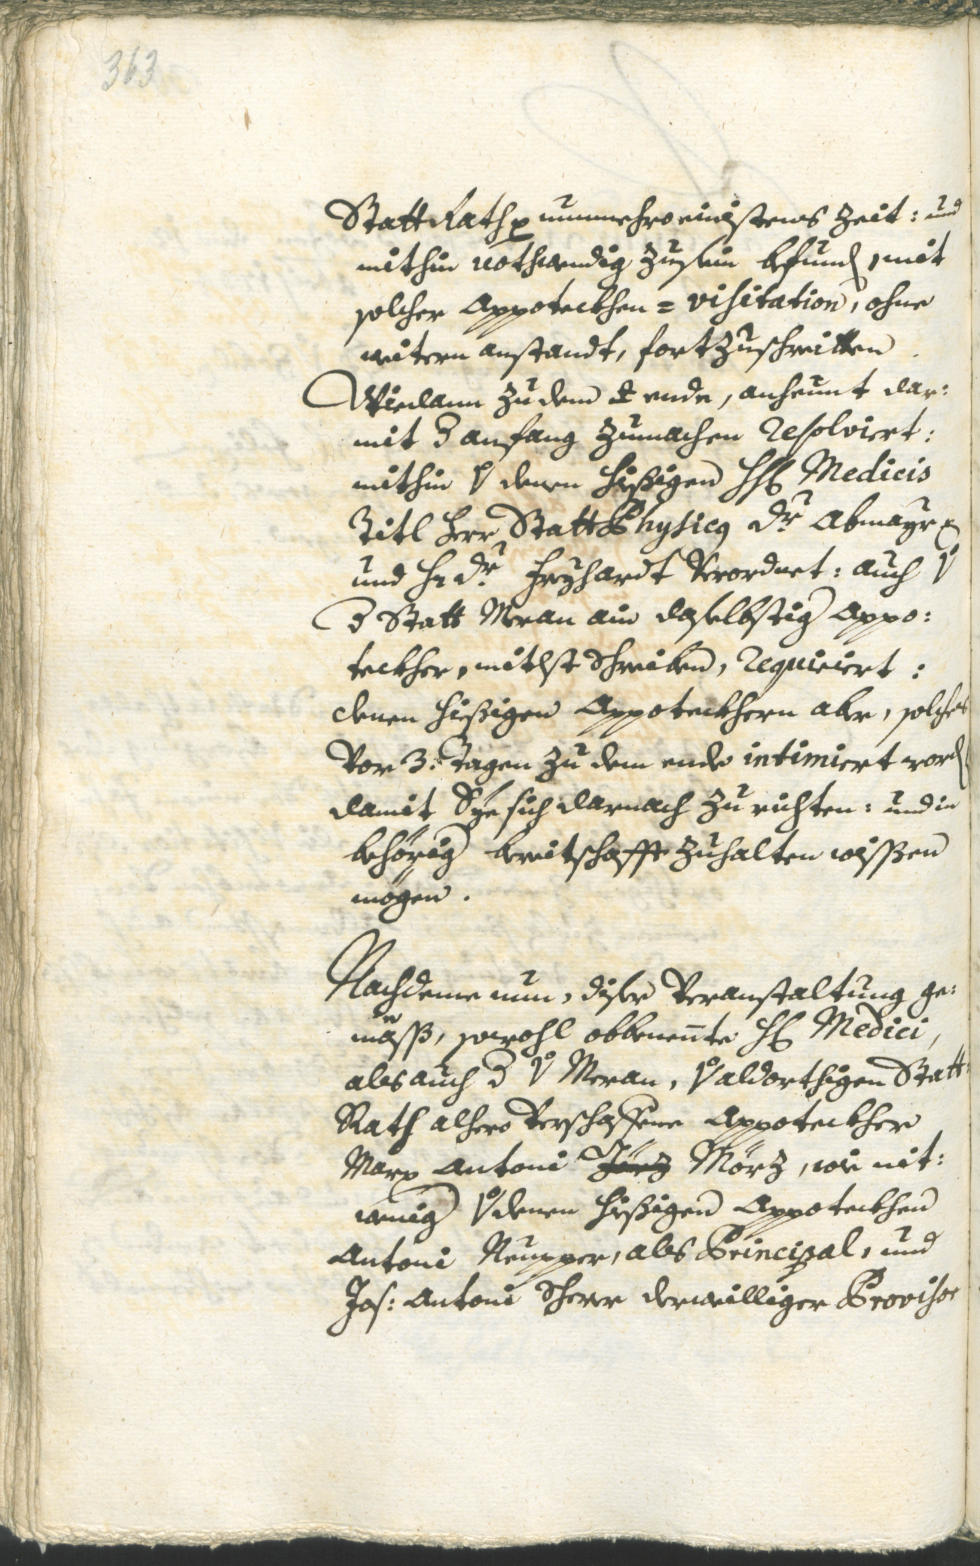 363
Statt Rath nunmehro einistens Zeit: und
mithin nothwendig zusein befund, mit
solcher Appoteckhen = visitation, ohne
weitern anstandt, fortzuschreitten.
Wiedann zu dem ende, anheunt dar:
mit anfang zumachen Resolviert:
mithin denen hießigen HH Medicis
Titl Herr Statt Physicq Dr. Abmayr
und Hr. Dr. Freyhardt Verordnet: auch
Statt Meran ain daselbstig Appo:
teckher, mitlst Schreiben, Requiriert:
denen hießigen Appoteckhern aber, solches
Vor 3: Tagen zu dem ende intimiert word
damit Sye sich darnach zu richten: und in
behörig bereitschafft zuhalten wissen
mögen.
Nachdeme nun, diser Veranstaltung ge:
mäss, sowohl obbenente HH Medici,
als auch Meran, aldorthigen Statt
Rath alhero Verschaffene Appoteckher
Marx Antoni Mörz, wie nit:
wenig denen hießigen Appoteckhen
Antoni Neupper, als Principal, und
Jos: Antoni Scherer derweilliger Provisor